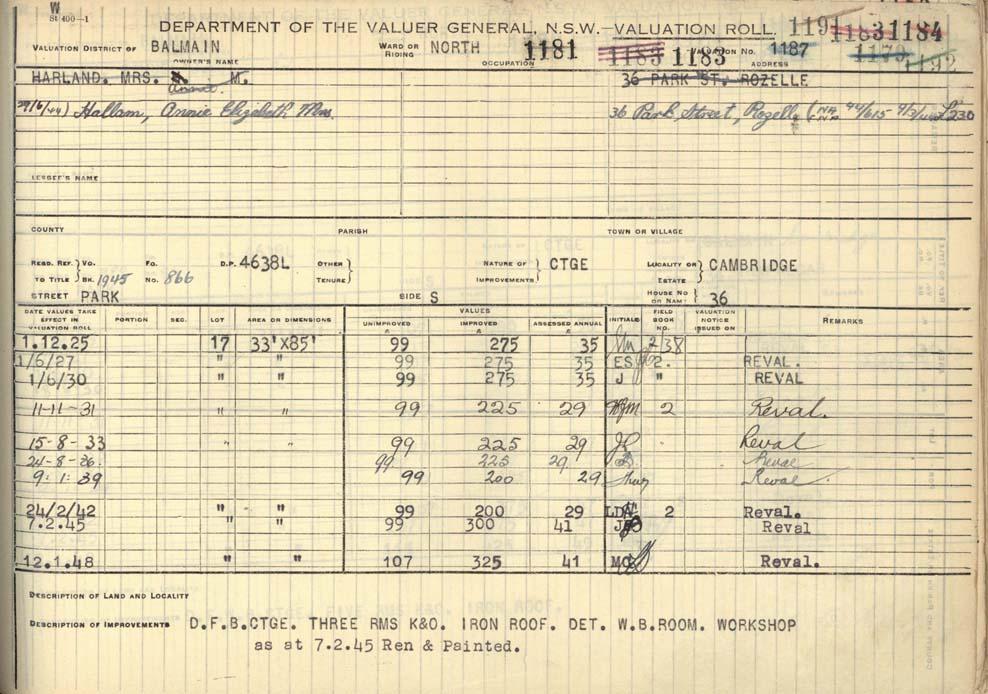 W
St 400—1
DEPARTMENT OF THE VALUER GENERAL, N.S.W.—VALUATION ROLL. 1191 1183 1184
VALUATION DISTRICT OF BALMAIN WARD OR RIDING NORTH 1181 1183 1183 VALUATION No. 1187 1179 1192
OWNER'S NAME OCCUPATION ADDRESS
HARLAND. MRS. M. 36 PARK ST. ROZELLE
Annie.
29/6/44) Hallam, Annie Elizabeth Mrs. 36 Park Street, Rozelle 44/615 £230
LESSEE'S NAME
COUNTY PARISH TOWN OR VILLAGE
REGD. REF. TO TITLE } Vo. Fo. D.P. 4638L OTHER TENURE } NATURE OF IMPROVEMENTS } CTGE LOCALITY OR ESTATE } CAMBRIDGE
BK. 1945 No. 866
STREET PARK SIDE S HOUSE No OR NAME } 36
DATE VALUES TAKE EFFECT IN VALUATION ROLL PORTION SEC. LOT AREA OR DIMENSIONS VALUES UNIMPROVED £ IMPROVED £ ASSESSED ANNUAL £ INITIALS FIELD BOOK NO. VALUATION NOTICE ISSUED ON REMARKS
1.12.25 17 33'X85' 99 275 35 2/38
1/6/27 " " 99 275 35 ES 2. REVAL.
1/6/30 " " 99 275 35 J " REVAL
11-11-31 " " 99 225 29 2 Reval.
15-8-33 " " 99 225 29 Reval
24-8-36. 99 225 29 Reval
9:1:39 99 200 29 Reval
24/2/42 " " 99 200 29 LDN 2 Reval.
7.2.45 " " 99 300 41 Reval
12.1.48 " " 107 325 41 Reval.
DESCRIPTION OF LAND AND LOCALITY
DESCRIPTION OF IMPROVEMENTS D.F.B.CTGE. THREE RMS K&O. IRON ROOF. DET. W.B.ROOM. WORKSHOP
as at 7.2.45 Ren & Painted.